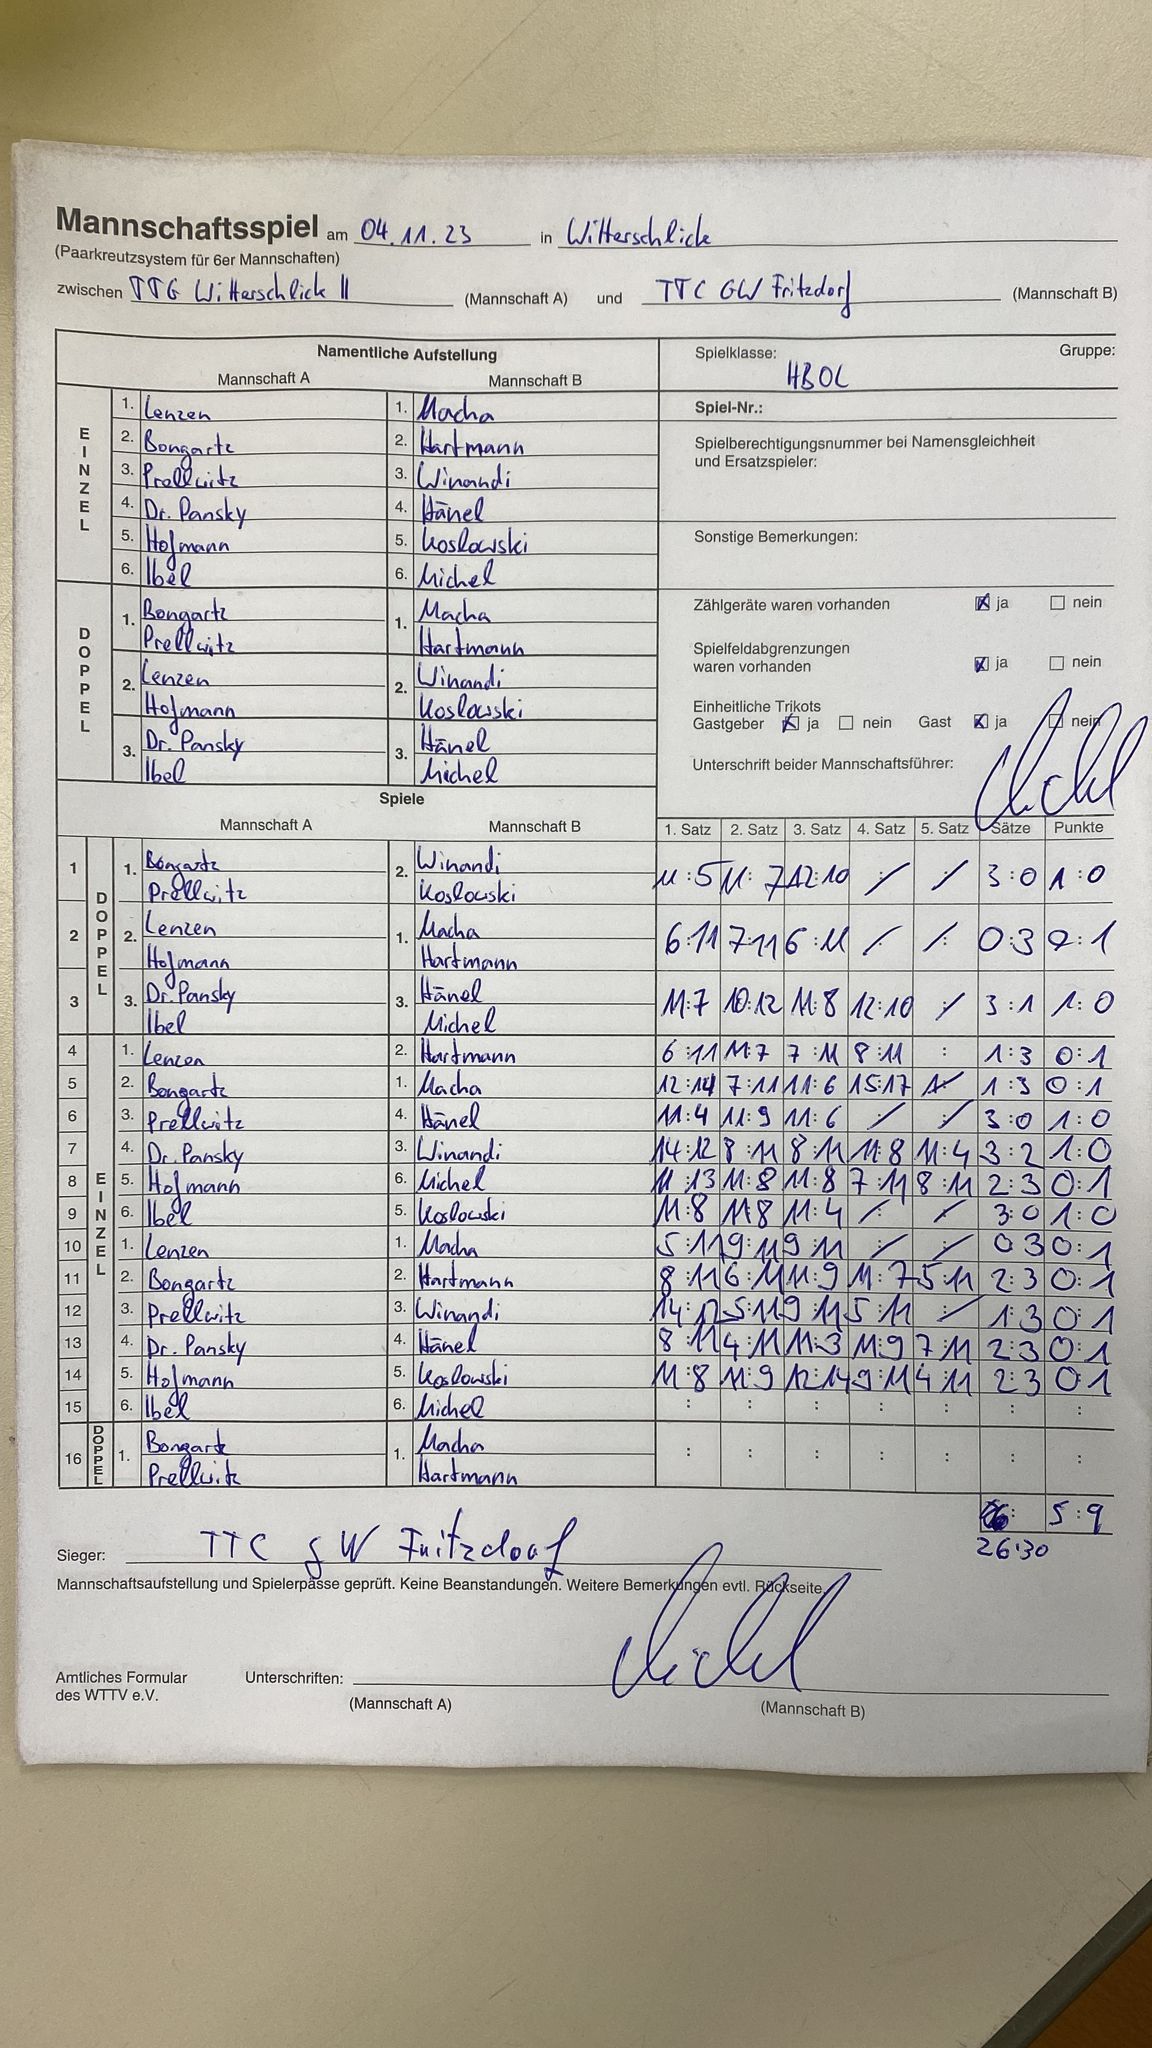 Mannschaftsspiel am 04.11.23 in Witterschlick
(Paarkreutzsystem für 6er Mannschaften)
zwischen TTG Witterschlick II (Mannschaft A) und TTC GW Fritzdorf (Mannschaft B)
Namentliche Aufstellung
Mannschaft A Mannschaft B
EINZEL
1. Lenzen 1. Macha
2. Bongartz 2. Hartmann
3. Prellwitz 3. Winandi
4. Dr. Pansky 4. Hänel
5. Hofmann 5. Koslowski
6. Ibel 6. Michel
DOPPEL
1. Bongartz 1. Macha
Prellwitz Hartmann
2. Lenzen 2. Winandi
Hofmann Koslowski
3. Dr. Pansky 3. Hänel
Ibel Michel
Spielklasse: HBOL Gruppe:
Spiel-Nr.:
Spielberechtigungsnummer bei Namensgleichheit
und Ersatzspieler:
Sonstige Bemerkungen:
Zählgeräte waren vorhanden ja nein
Spielfeldabgrenzungen
waren vorhanden ja nein
Einheitliche Trikots
Gastgeber ja nein Gast ja nein
Unterschrift beider Mannschaftsführer:
Spiele
Mannschaft A Mannschaft B 1. Satz 2. Satz 3. Satz 4. Satz 5. Satz Sätze Punkte
DOPPEL
1 1. Bongartz 2. Winandi 11:5 11:7 12:10 / / 3:0 1:0
Prellwitz Koslowski
2 2. Lenzen 1. Macha 6:11 7:11 6:11 / / 0:3 0:1
Hofmann Hartmann
3 3. Dr. Pansky 3. Hänel 11:7 10:12 11:8 12:10 / 3:1 1:0
Ibel Michel
EINZEL
4 1. Lenzen 2. Hartmann 6:11 11:7 7:11 8:11 : 1:3 0:1
5 2. Bongartz 1. Macha 12:14 7:11 11:6 15:17 1:3 0:1
6 3. Prellwitz 4. Hänel 11:4 11:9 11:6 / / 3:0 1:0
7 4. Dr. Pansky 3. Winandi 14:12 8:11 8:11 11:8 11:4 3:2 1:0
8 5. Hofmann 6. Michel 11:13 11:8 11:8 7:11 8:11 2:3 0:1
9 6. Ibel 5. Koslowski 11:8 11:8 11:4 / / 3:0 1:0
10 1. Lenzen 1. Macha 5:11 9:11 9:11 / / 0:3 0:1
11 2. Bongartz 2. Hartmann 8:11 6:11 11:9 11:7 5:11 2:3 0:1
12 3. Prellwitz 3. Winandi 14:12 5:11 9:11 5:11 / 1:3 0:1
13 4. Dr. Pansky 4. Hänel 8:11 4:11 11:3 11:9 7:11 2:3 0:1
14 5. Hofmann 5. Koslowski 11:8 11:9 12:14 9:11 4:11 2:3 0:1
15 6. Ibel 6. Michel : : : : : : :
DOPPEL
16 1. Bongartz 1. Macha : : : : : : :
Prellwitz Hartmann
5:9
26:30
Sieger: TTC GW Fritzdorf
Mannschaftsaufstellung und Spielerpässe geprüft. Keine Beanstandungen. Weitere Bemerkungen evtl. Rückseite.
Amtliches Formular Unterschriften:
des WTTV e.V. (Mannschaft A) (Mannschaft B)